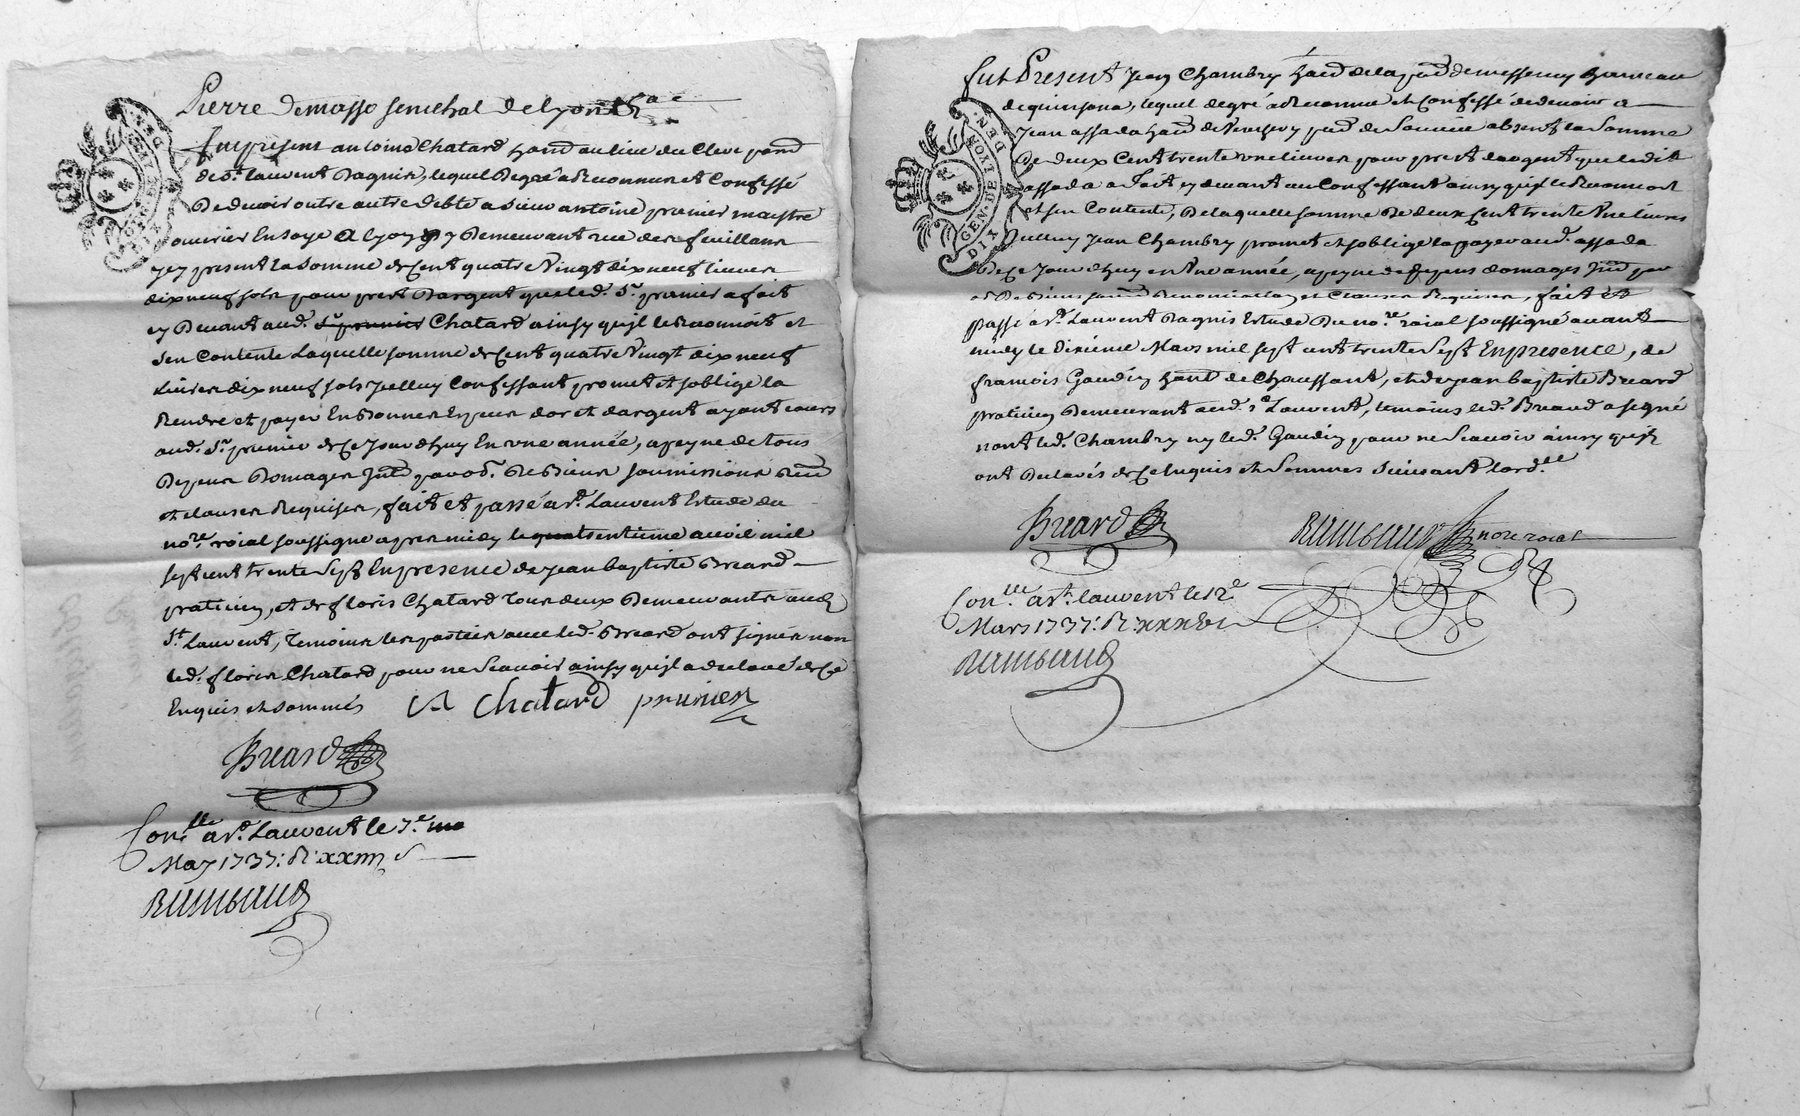 Pierre Demasso senechal de lyon &
DIX DEN. GEN. DE LYON
fut present antoine Chatard hant au lieu du Clerc parr
de st. lauvent Dagnis, lequel De gré a Reconnu et Confessé
De devoir outre autre debte a sieur antoine prunier maistre
ouvrier En soye a lyon y Demeuvant rue des feuillans
icy present la somme de Cent quatre Vingt dix neuf livres
dix neuf sols pour prest Dargent que led. Sr. prunier a fait
cy Devant aud. Chatard ainsy quil le Reconnoit et
sen Contente Laquelle somme de Cent quatre Vingt dix neuf
Livres dix neuf sols Jcelluy Confessant promet et soblige la
Rendre et payer En Bonnes Especes dor et dargent ayant cours
aud. Sr. prunier de Ce Jourdhuy En une année, a peyne de tous
Depens Domages par Des Biens soumissions
et clauses Requises, fait et passé a st. Lauvent Estude du
nore. roial soussigne apres midy le trentieme avril mil
sept cent trente Sept En presence de Jean baptiste Breard
praticien, et de floris Chatard Tous deux Demeuvants aud.
St. Lauvent, Temoins les parties avec led. Breard ont signés non
led. floris Chatard pour ne Scavoir ainsy quil a declaré de Ce
Enquis et sommés A Chatard prunier
Breard
Conlle. a st. Lauvent le 7e.
May 1737: R: xxiiij s
Rimbaud
fut Present Jean Chambry hant de la parr de messemy hameau
de quinsona, lequel de gré a Reconnu et Confessé de devoir a
Jean assada hant de parr de Soucieu absent la Somme
De deux Cent trente une livres pour prest dargent que le dit
assada a fait cy devant au Confessant ainsy quil le Reconnoit
et sen Contente, De laquelle somme De deux Cent trente Une livres
Jcelluy Jean Chambry promet et soblige la payer aud. assada
De Ce Jourdhuy en Une année, a peyne de depens domages
DIX DEN. GEN. DE LYON
et Des Biens Renonciations et Clauses Requises, fait et
passé a st. Lauvent Dagnis Estude Du nore. roial soussigné avant
midy le Dixiéme Mars mil sept cent trente Sept En presence, de
francois Gaudin hant de Chaussant, et de Jean baptiste Breard
praticien Demeurant aud. st Lauvent, temoins led. Breard a signé
non led. Chambry ny led. Gaudin pour ne Scavoir ainsy quils
ont Declarés de Ce Enquis et Sommes Suivant lord.lle
Breard Rimbaud nore roial
Conlle. a st. lauvent le 12e
Mars 1737: R: xxx
Rimbaud